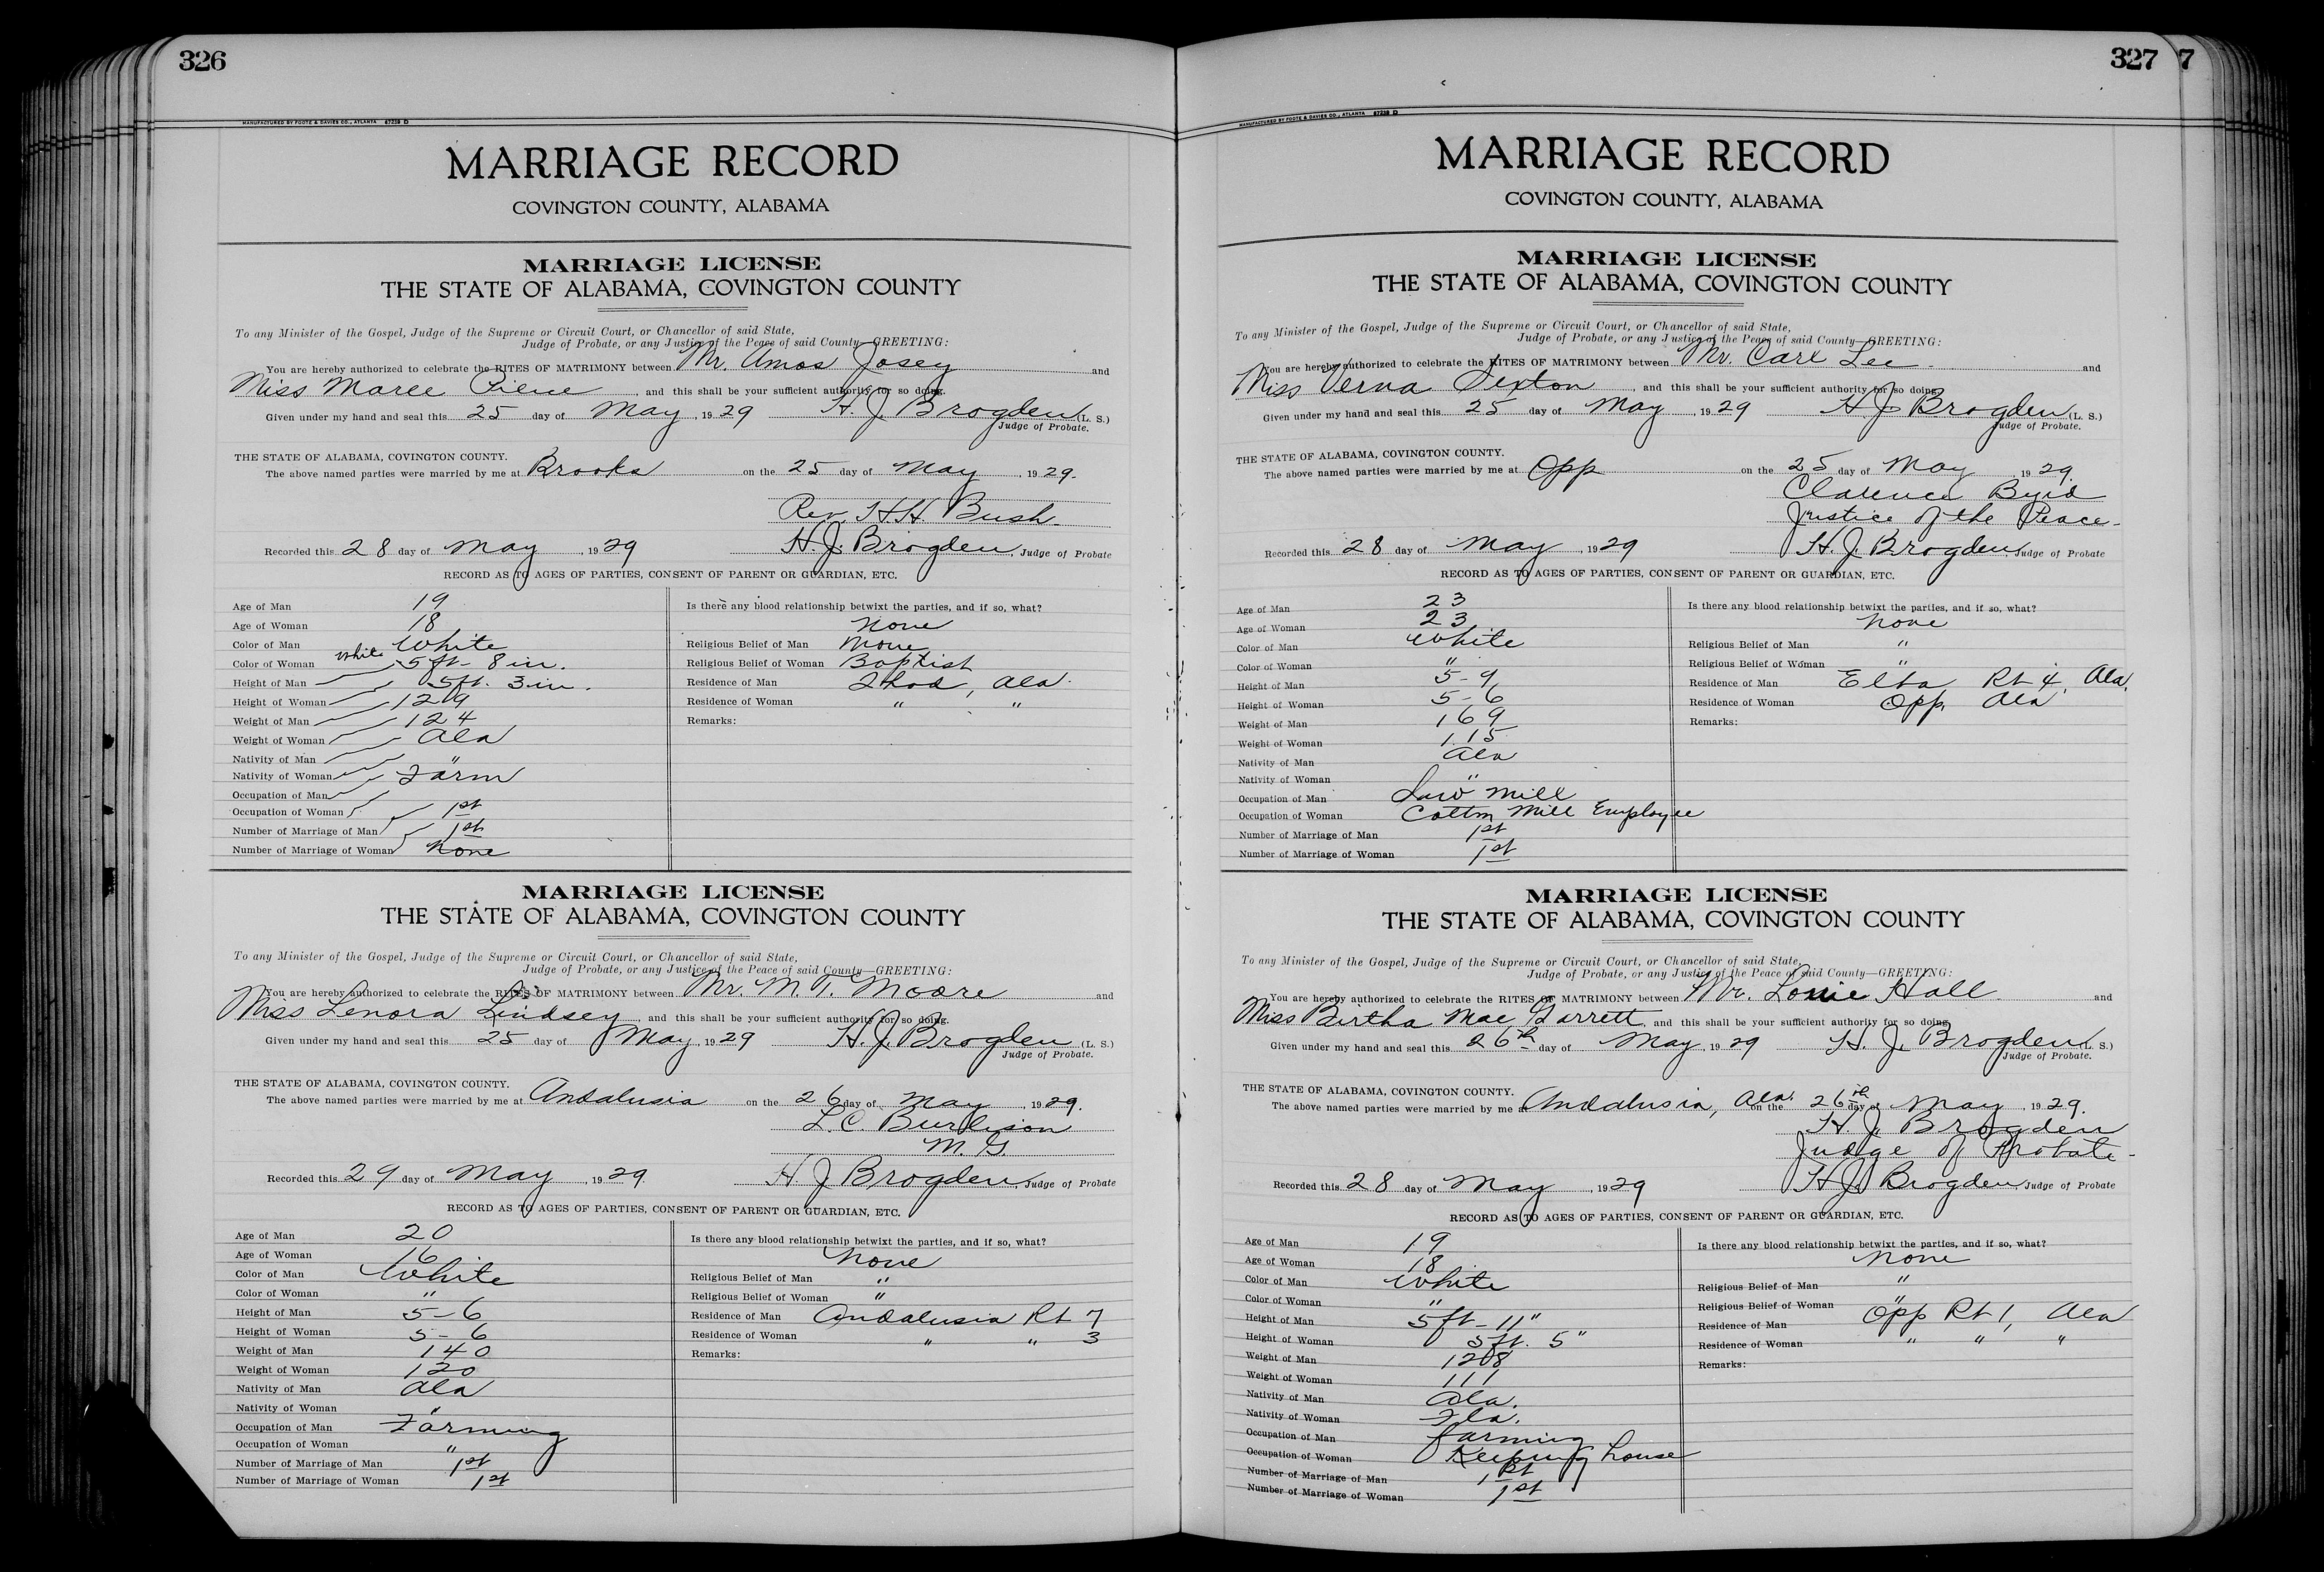 326
MANUFACTURED BY FOOTE & DAVIES CO., ATLANTA 67238 D
MARRIAGE RECORD
COVINGTON COUNTY, ALABAMA
MARRIAGE LICENSE
THE STATE OF ALABAMA, COVINGTON COUNTY
To any Minister of the Gospel, Judge of the Supreme or Circuit Court, or Chancellor of said State,
Judge of Probate, or any Justice of the Peace of said County—GREETING:
You are hereby authorized to celebrate the RITES OF MATRIMONY between Mr. Amos Josey and
Miss Maree Piene and this shall be your sufficient authority for so doing.
Given under my hand and seal this 25 day of May, 1929 H. J. Brogden (L. S.)
Judge of Probate.
THE STATE OF ALABAMA, COVINGTON COUNTY.
The above named parties were married by me at Brooks on the 25 day of May, 1929.
Rev. H.H. Bush
Recorded this 28 day of May, 1929 H. J. Brogden, Judge of Probate
RECORD AS TO AGES OF PARTIES, CONSENT OF PARENT OR GUARDIAN, ETC.
Age of Man 19
Age of Woman 18
Color of Man White
Color of Woman white 5 ft - 8 in.
Height of Man 5 ft. 3 in.
Height of Woman 129
Weight of Man 124
Weight of Woman Ala
Nativity of Man "
Nativity of Woman Farm
Occupation of Man
Occupation of Woman 1st
Number of Marriage of Man 1st
Number of Marriage of Woman None
Is there any blood relationship betwixt the parties, and if so, what?
None
Religious Belief of Man None
Religious Belief of Woman Baptist
Residence of Man , Ala.
Residence of Woman " "
Remarks:
MARRIAGE LICENSE
THE STATE OF ALABAMA, COVINGTON COUNTY
To any Minister of the Gospel, Judge of the Supreme or Circuit Court, or Chancellor of said State,
Judge of Probate, or any Justice of the Peace of said County—GREETING:
You are hereby authorized to celebrate the RITES OF MATRIMONY between Mr. M. T. Moore and
Miss Lenora Lindsey and this shall be your sufficient authority for so doing.
Given under my hand and seal this 25 day of May, 1929 H. J. Brogden (L. S.)
Judge of Probate.
THE STATE OF ALABAMA, COVINGTON COUNTY.
The above named parties were married by me at Andalusia on the 26 day of May, 1929.
L. C. Burleson
M. G.
Recorded this 29 day of May, 1929 H J Brogden, Judge of Probate
RECORD AS TO AGES OF PARTIES, CONSENT OF PARENT OR GUARDIAN, ETC.
Age of Man 20
Age of Woman 16
Color of Man White
Color of Woman "
Height of Man 5-6
Height of Woman 5-6
Weight of Man 140
Weight of Woman 120
Nativity of Man Ala
Nativity of Woman "
Occupation of Man Farming
Occupation of Woman "
Number of Marriage of Man 1st
Number of Marriage of Woman 1st
Is there any blood relationship betwixt the parties, and if so, what?
None
Religious Belief of Man "
Religious Belief of Woman "
Residence of Man Andalusia Rt 7
Residence of Woman " " 3
Remarks:
327 7
MANUFACTURED BY FOOTE & DAVIES CO., ATLANTA 67238 D
MARRIAGE RECORD
COVINGTON COUNTY, ALABAMA
MARRIAGE LICENSE
THE STATE OF ALABAMA, COVINGTON COUNTY
To any Minister of the Gospel, Judge of the Supreme or Circuit Court, or Chancellor of said State,
Judge of Probate, or any Justice of the Peace of said County—GREETING:
You are hereby authorized to celebrate the RITES OF MATRIMONY between Mr. Carl Lee and
Miss Verna Sexton, and this shall be your sufficient authority for so doing.
Given under my hand and seal this 25 day of May, 1929 H J Brogden (L. S.)
Judge of Probate.
THE STATE OF ALABAMA, COVINGTON COUNTY.
The above named parties were married by me at Opp on the 25 day of May 1929.
Clarence Byrd
Justice of the Peace
Recorded this 28 day of May, 1929 H. J. Brogden, Judge of Probate
RECORD AS TO AGES OF PARTIES, CONSENT OF PARENT OR GUARDIAN, ETC.
Age of Man 23
Age of Woman 23
Color of Man White
Color of Woman "
Height of Man 5-9
Height of Woman 5-6
Weight of Man 169
Weight of Woman 115
Nativity of Man Ala
Nativity of Woman "
Occupation of Man Saw Mill
Occupation of Woman Cotton Mill Employee
Number of Marriage of Man 1st
Number of Marriage of Woman 1st
Is there any blood relationship betwixt the parties, and if so, what?
None
Religious Belief of Man "
Religious Belief of Woman "
Residence of Man Elba Rt 4, Ala.
Residence of Woman Opp, Ala
Remarks:
MARRIAGE LICENSE
THE STATE OF ALABAMA, COVINGTON COUNTY
To any Minister of the Gospel, Judge of the Supreme or Circuit Court, or Chancellor of said State,
Judge of Probate, or any Justice of the Peace of said County—GREETING:
You are hereby authorized to celebrate the RITES OF MATRIMONY between Mr. Louie Hall and
Miss Birtha Mae Garrett, and this shall be your sufficient authority for so doing.
Given under my hand and seal this 26th day of May, 1929 H. J. Brogden (L. S.)
Judge of Probate.
THE STATE OF ALABAMA, COVINGTON COUNTY.
The above named parties were married by me at Andalusia, Ala. on the 26th day of May, 1929.
H. J. Brogden
Judge of Probate
Recorded this 28 day of May, 1929 H J Brogden Judge of Probate
RECORD AS TO AGES OF PARTIES, CONSENT OF PARENT OR GUARDIAN, ETC.
Age of Man 19
Age of Woman 18
Color of Man White
Color of Woman "
Height of Man 5 ft - 11"
Height of Woman 5 ft. 5"
Weight of Man 128
Weight of Woman 111
Nativity of Man Ala.
Nativity of Woman Fla.
Occupation of Man farming
Occupation of Woman Keeping house
Number of Marriage of Man 1st
Number of Marriage of Woman 1st
Is there any blood relationship betwixt the parties, and if so, what?
None
Religious Belief of Man "
Religious Belief of Woman "
Residence of Man Opp Rt 1, Ala
Residence of Woman " " "
Remarks: